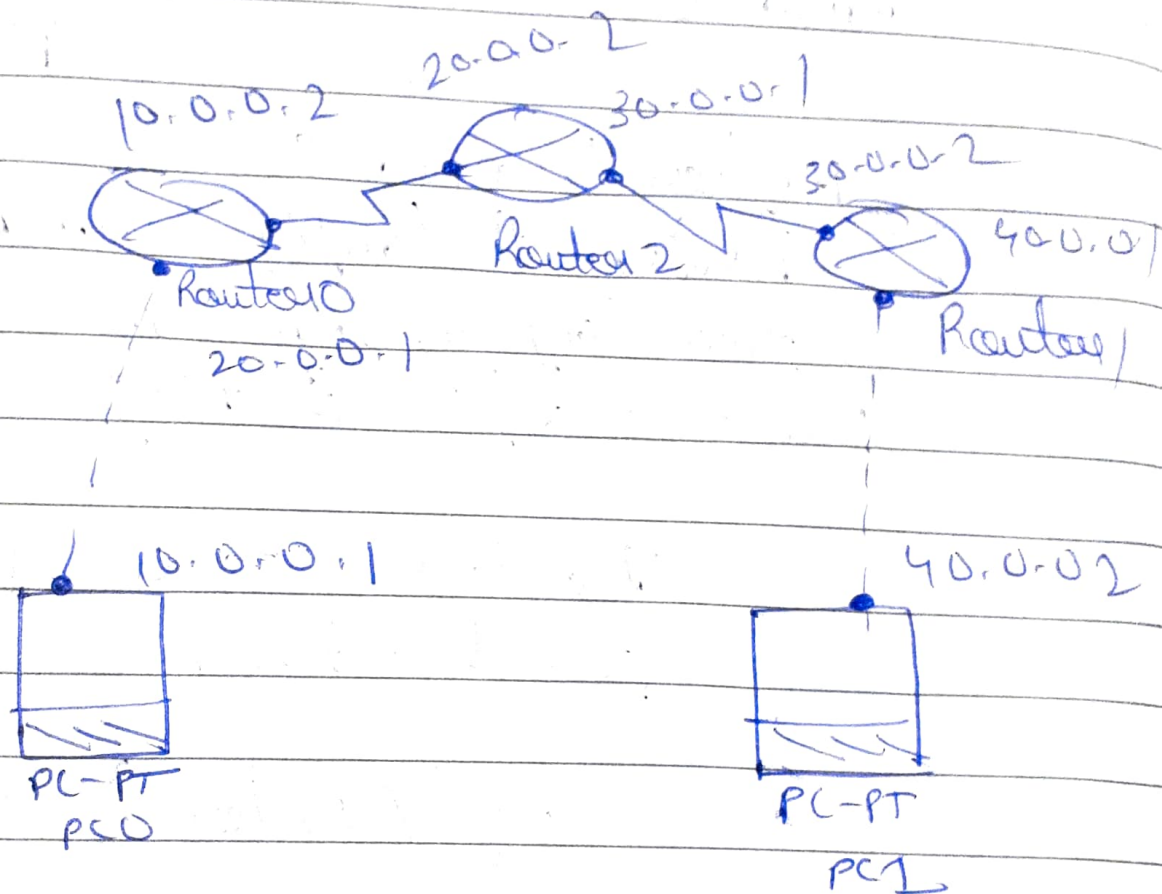 20.0.0.2
10.0.0.2
30.0.0.1
30.0.0.2
40.0.0.1
Router 2
Router0
Router1
20.0.0.1
10.0.0.1
40.0.0.2
PC-PT
PC0
PC-PT
PC1